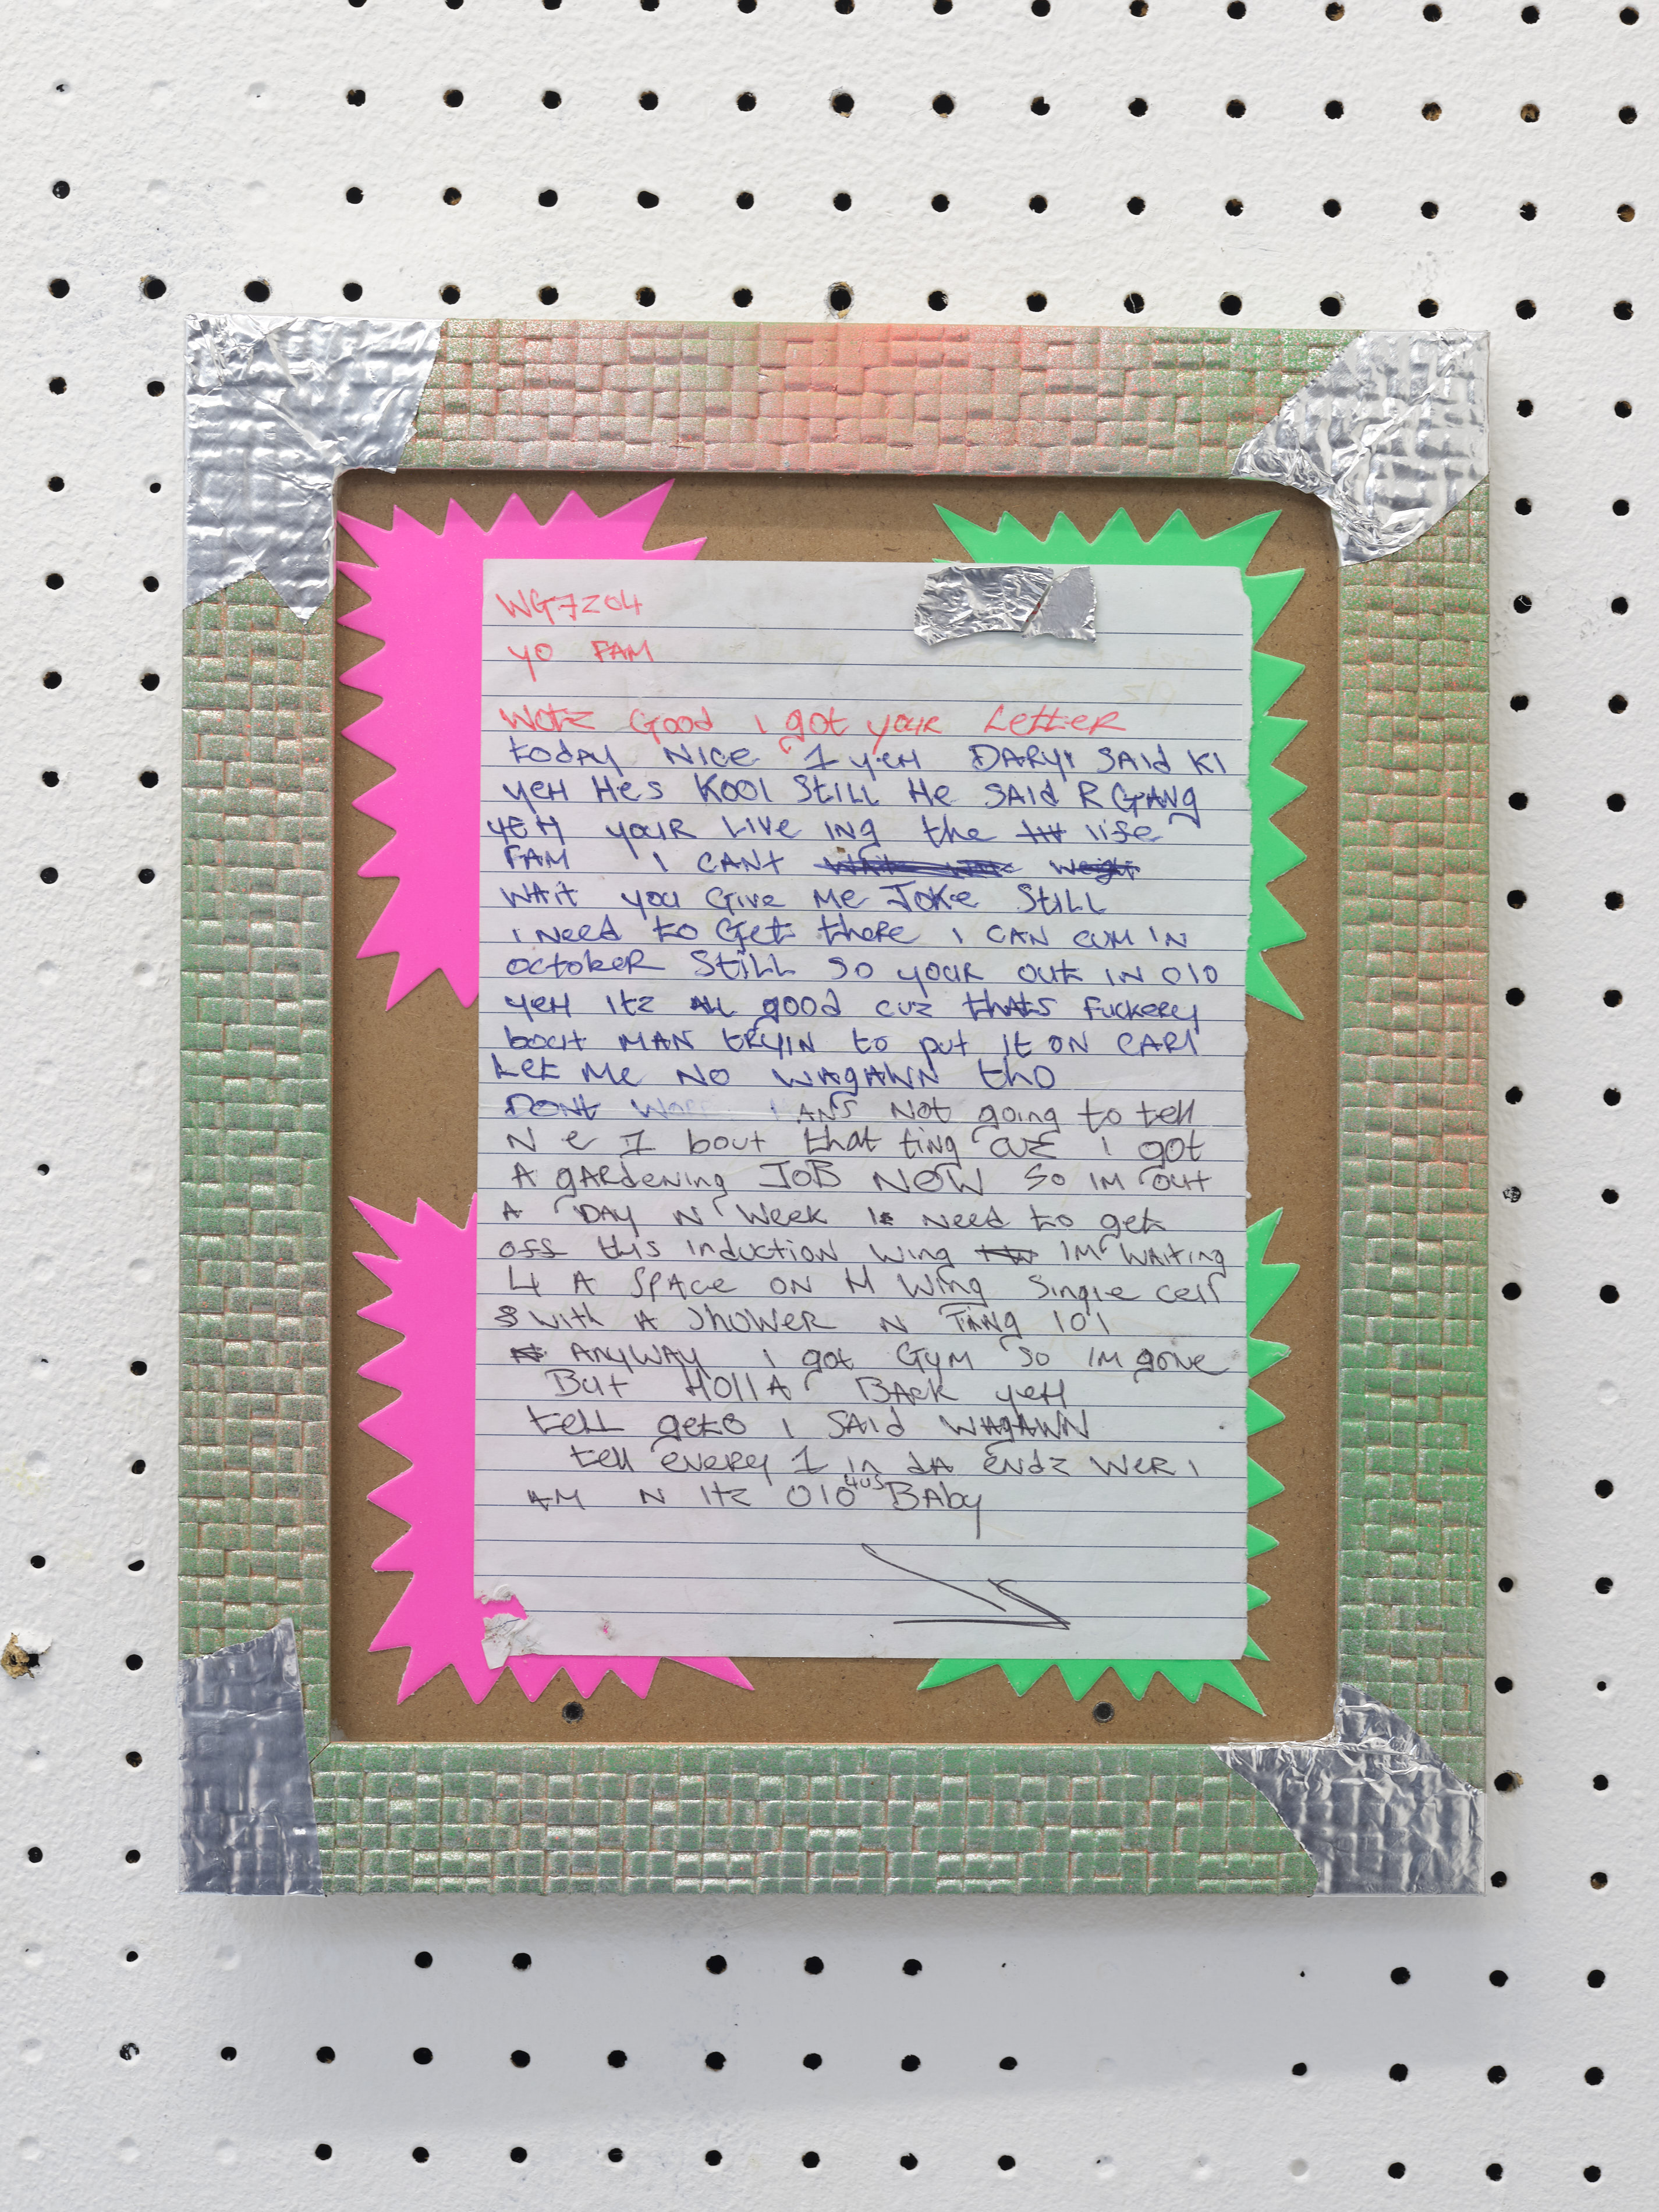 WG7204
yo FAM
Wotz Good i got your Letter
today Nice 1 yeH DARyl SAid Ki
yeH Hes Kool Still He SAid R GANg
yEH youR Live ing the life
FAM i CANt
WAit you Give Me JoKe Still
i Need to Get there i CAN cum IN
octobeR StiLL so youR out IN 010
yeH itz ALL good cuz thAts Fuckery
bout MAN tRyiN to put it oN CARl
Let Me No WAgAWN tho
DoNt ANS Not going to tell
N e 1 bout that ting cuz i got
A gARdening JoB NOW So iM out
A DAy N Week i Need to get
off this induction wing iM WAiting
4 A SpAce oN M Wing Single cell
With A ShoWeR N TiNg lol
ANyWAy i got Gym So iM goNe
But HollA BAck yeH
tell geto i SAid WAgAWN
tell eveRy 1 in dA eNdz WeR i
AM N itz 010 4us BAby